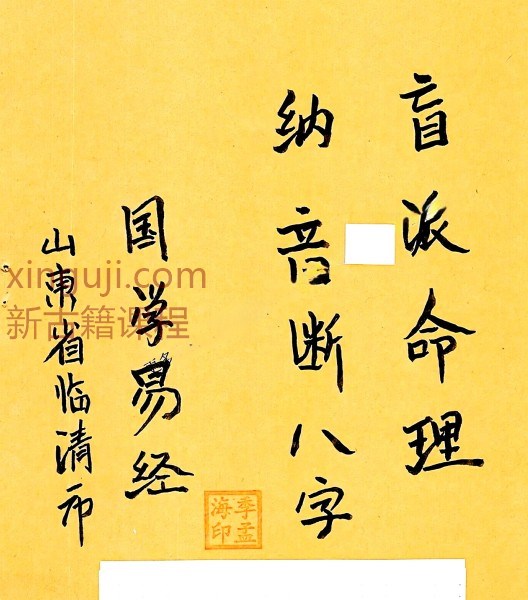 盲派命理
纳音断八字
国学易经
山东省临清市
季孟
海印
xinguji.com
新古籍课程